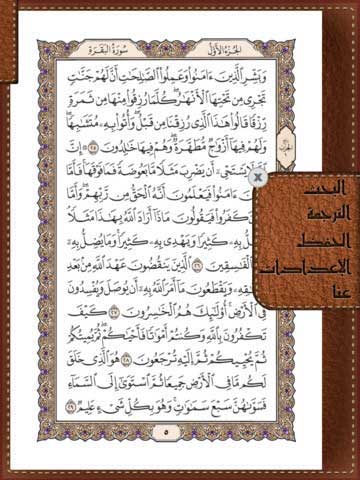 الجزء الأول
سورة البقرة
وَبَشِّرِ ٱلَّذِينَ ءَامَنُوا۟ وَعَمِلُوا۟ ٱلصَّٰلِحَٰتِ أَنَّ لَهُمْ جَنَّٰتٍ
تَجْرِى مِن تَحْتِهَا ٱلْأَنْهَٰرُ ۖ كُلَّمَا رُزِقُوا۟ مِنْهَا مِن ثَمَرَةٍ
رِّزْقًا ۙ قَالُوا۟ هَٰذَا ٱلَّذِى رُزِقْنَا مِن قَبْلُ ۖ وَأُتُوا۟ بِهِۦ مُتَشَٰبِهًا ۖ
وَلَهُمْ فِيهَآ أَزْوَٰجٌ مُّطَهَّرَةٌ ۖ وَهُمْ فِيهَا خَٰلِدُونَ ٢٥ ۞ إِنَّ
يَسْتَحْىِۦٓ أَن يَضْرِبَ مَثَلًا مَّا بَعُوضَةً فَمَا فَوْقَهَا ۚ فَأَمَّا
ءَامَنُوا۟ فَيَعْلَمُونَ أَنَّهُ ٱلْحَقُّ مِن رَّبِّهِمْ ۖ وَأَمَّا
كَفَرُوا۟ فَيَقُولُونَ مَاذَآ أَرَادَ ٱللَّهُ بِهَٰذَا مَثَلًا ۘ
بِهِۦ كَثِيرًا وَيَهْدِى بِهِۦ كَثِيرًا ۚ وَمَا يُضِلُّ بِهِۦٓ
ٱلْفَٰسِقِينَ ٢٦ ٱلَّذِينَ يَنقُضُونَ عَهْدَ ٱللَّهِ مِنۢ بَعْدِ
وَيَقْطَعُونَ مَآ أَمَرَ ٱللَّهُ بِهِۦٓ أَن يُوصَلَ وَيُفْسِدُونَ
فِى ٱلْأَرْضِ ۚ أُو۟لَٰٓئِكَ هُمُ ٱلْخَٰسِرُونَ ٢٧ كَيْفَ
تَكْفُرُونَ بِٱللَّهِ وَكُنتُمْ أَمْوَٰتًا فَأَحْيَٰكُمْ ۖ ثُمَّ يُمِيتُكُمْ
ثُمَّ يُحْيِيكُمْ ثُمَّ إِلَيْهِ تُرْجَعُونَ ٢٨ هُوَ ٱلَّذِى خَلَقَ
لَكُم مَّا فِى ٱلْأَرْضِ جَمِيعًا ثُمَّ ٱسْتَوَىٰٓ إِلَى ٱلسَّمَآءِ
فَسَوَّىٰهُنَّ سَبْعَ سَمَٰوَٰتٍ ۚ وَهُوَ بِكُلِّ شَىْءٍ عَلِيمٌ ٢٩
٥
البحث
الترجمة
الحفظ
الاعدادات
عنا